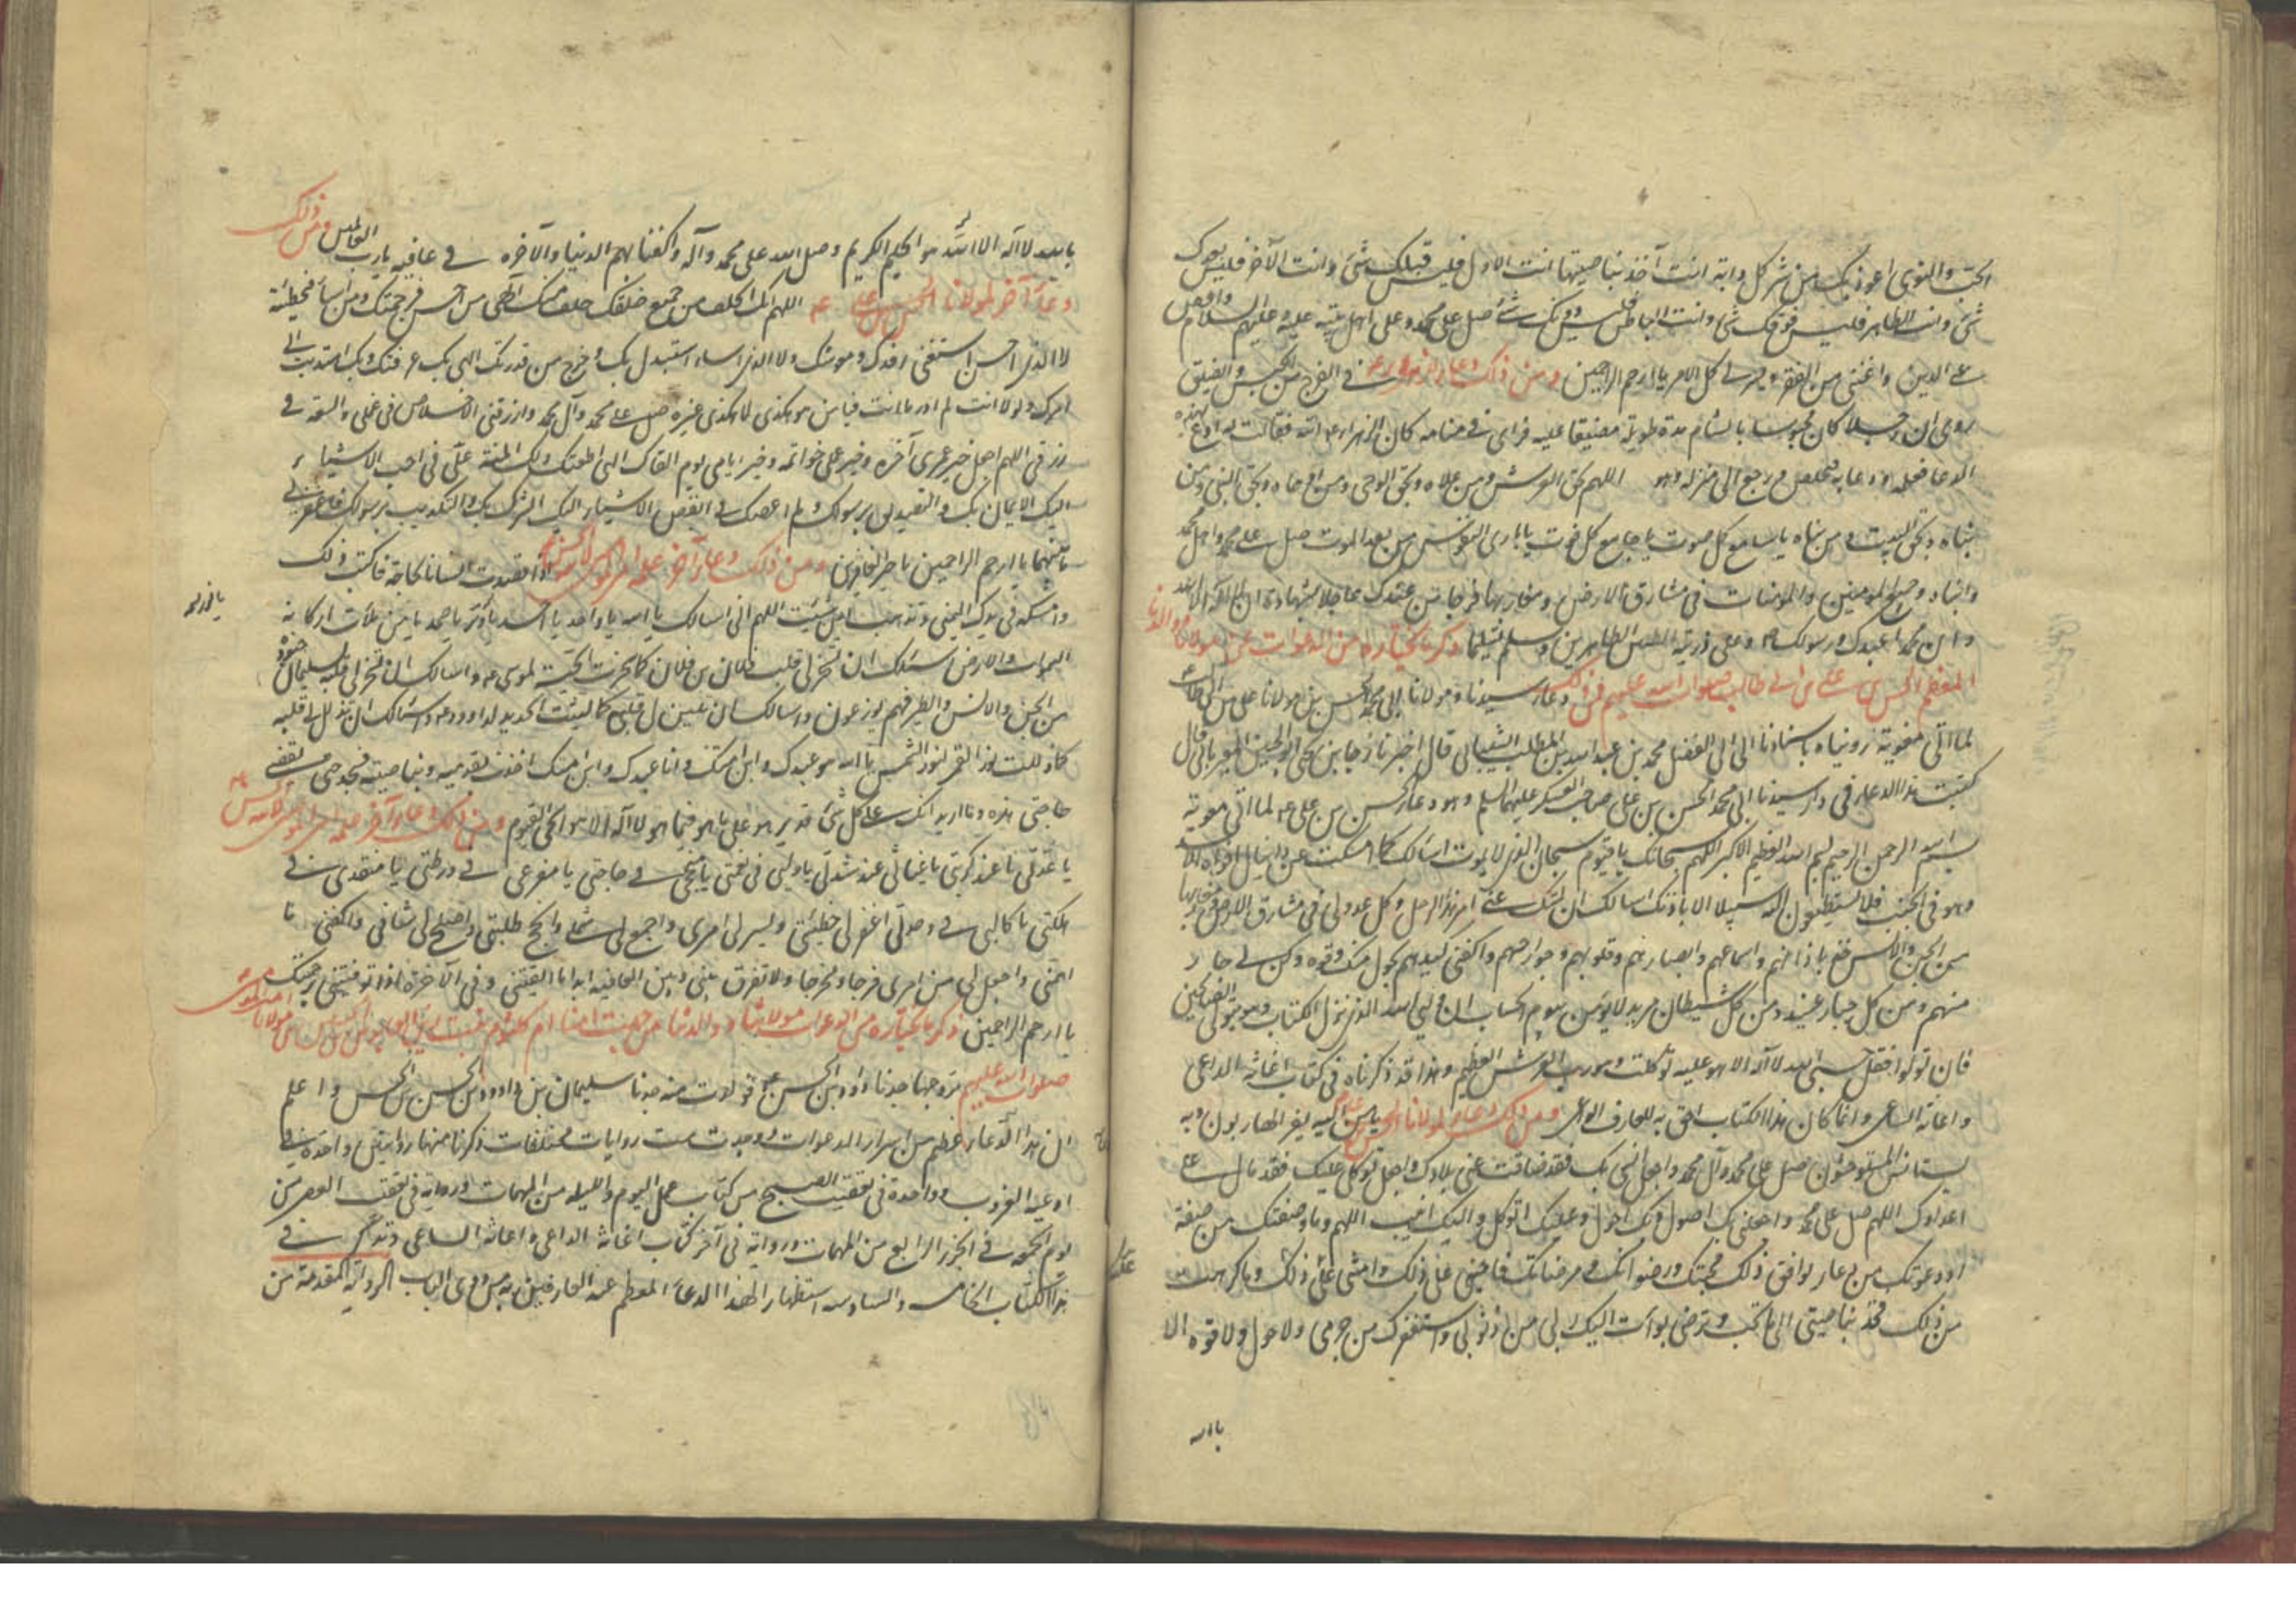 الحب والنوى اعوذ بك من شر كل دابة انت آخذ بناصيتها انت الاول فليس قبلك شئ وانت الآخر فليس بعدك
شئ وانت الظاهر فليس فوقك شئ وانت الباطن فليس دونك شئ صل على محمد وعلى اهل بيته عليه وعليهم السلام واقض
عنى الدين واغننى من الفقر ويسر لى كل الامر يا ارحم الراحمين ومن ذلك دعاء لها فى الفرج من الحبس والضيق
روى ان رجلا كان محبوسا بالشام مدة طويلة مضيقا عليه فراى فى منامه كان الزهراء اتته فقالت له ادع بهذا
الدعا فتعلمه ودعا به فتخلص ورجع الى منزله وهو اللهم بحق العرش ومن علاه وبحق الوحى ومن اوحاه وبحق النبى ومن
نباه وبحق البيت ومن بناه يا سامع كل صوت يا جامع كل فوت يا بارى النفوس بعد الموت صل على محمد واهل بيته
واتنا وجميع المومنين والمومنات فى مشارق الارض ومغاربها فرجا من عندك عاجلا بشهادة ان لا اله الا الله
وان محمدا عبدك ورسولك وعلى ذريته الطيبين الطاهرين وسلم تسليما ذكر ما نختاره من الدعوات عن مولانا
المعظم الحسن بن على بن ابى طالب صلوات الله عليهم فمن ذلك دعاء سيدنا ومولانا ابى محمد الحسن بن مولانا على بن ابى طالب
لما اتى معوية رويناه باسنادنا الى ابى الفضل محمد بن عبد الله بن المطلب الشيبانى قال اخبرنا رجا بن يحيى ابو الحسين العبرتائى قال
كتبت هذا الدعاء فى دار سيدنا ابى محمد الحسن بن على صاحب العسكر عليهما السلم وهو دعاء الحسن بن على لما اتى معوية
بسم الله الرحمن الرحيم بسم الله العظيم الاكبر اللهم سبحانك يا قيوم سبحان الذى لا يموت اسالك كما امسكت عن دانيال افواه الاسد
وهو فى الجب فلا يستطيعون اليه سبيلا الا باذنك اسالك ان تمسك عنى امر هذا الرجل وكل عدو لى فى مشارق الارض ومغاربها
من الجن والانس خذ باذانهم واسماعهم وابصارهم وقلوبهم وجوارحهم واكفنى كيدهم بحول منك وقوة وكن لى جارا
منهم ومن كل جبار عنيد ومن كل شيطان مريد لا يؤمن بيوم الحساب ان وليى الله الذى نزل الكتاب وهو يتولى الصالحين
فان تولوا فقل حسبى الله لا اله الا هو عليه توكلت وهو رب العرش العظيم وهذا قد ذكرناه فى كتاب اغاثة الداعى
واعانة الساعى وانما كان هذا الكتاب احق به ومن ذلك دعاء لمولانا الحسن يا من اليه يفر الهاربون وبه
يستانس المستوحشون صل على محمد وآل محمد واجعل انسى بك فقد ضاقت عنى بلادك واجعل توكلى عليك فقد مال على
اعداؤك اللهم صل على محمد واجعلنى بك اصول وبك احول وعليك اتوكل واليك انيب اللهم وما وصفتك من صفة
او دعوتك من دعاء يوافق ذلك محبتك ورضوانك ومرضاتك فاحينى على ذلك وامتنى على ذلك وما كرهت
من ذلك فخذ بناصيتى الى ما تحب وترضى بؤت اليك ربى من ذنوبى واستغفرك من جرمى ولا حول ولا قوة الا
بالله
بالله لا اله الا الله هو الحليم الكريم وصل الله على محمد وآله واكفنا مهم الدنيا والآخرة فى عافية يا رب العالمين ومن ذلك
دعاء آخر لمولانا الحسن بن على اللهم انك الخلف من جميع خلقك وليس فى خلقك خلف منك الهى من احسن فبرحمتك ومن اساء فبخطيئته
لا الذى احسن استغنى عن رفدك ومعونتك ولا الذى اساء استبدل بك وخرج من قدرتك الهى بك عرفتك وبك اهتديت الى
امرك ولولا انت لم ادر ما انت فيا من هو هكذا ولا هكذا غيره صل على محمد وآل محمد وارزقنى الاخلاص فى عملى والسعة فى
رزقى اللهم اجعل خير عمرى آخره وخير عملى خواتمه وخير ايامى يوم القاك الهى اطعتك ولك المنة على فى احب الاشياء
اليك الايمان بك والتصديق برسولك ولم اعصك فى ابغض الاشياء اليك الشرك بك والتكذيب برسولك فاغفر لى
ما بينهما يا ارحم الراحمين يا خير الغافرين ومن ذلك دعاء آخر اذا قصدت انسانا لحاجة فاكتب ذلك
وامسكه فى يدك اليمنى وتذهب اين شئت اللهم انى اسالك يا الله يا واحد يا احد يا وتر يا صمد يا من ملأت اركانه
السموات والارض اسئلك ان تسخر لى قلب فلان بن فلان كما سخرت الحية لموسى واسالك ان تسخر لى قلبه كما سخرت لسليمان جنوده
من الجن والانس والطير فهم يوزعون واسالك ان تلين لى قلبه كما لينت الحديد لداود واسئلك ان تذلل لى قلبه
كما ذللت نور القمر لنور الشمس يا الله هو عبدك وابن امتك وانا عبدك وابن امتك اخذت بقدميه وبناصيته فسخره حتى يقضى
حاجتى هذه وما اريد انك على كل شئ قدير وهو على ما هو فيما هو لا اله الا هو الحى القيوم ومن ذلك دعاء آخر
يا عدتى عند كربتى يا غياثى عند شدتى يا وليى فى نعمتى يا منجحى فى حاجتى يا مفزعى فى ورطتى يا منقذى من
هلكتى يا كالئى فى وحدتى اغفر لى خطيئتى ويسر لى امرى واجمع لى شملى وانجح لى طلبتى واصلح لى شانى واكفنى ما
اهمنى واجعل لى من امرى فرجا ومخرجا ولا تفرق بينى وبين العافية ابدا ما ابقيتنى وفى الآخرة اذا توفيتنى برحمتك
يا ارحم الراحمين ذكر ما نختاره من الدعوات عن مولاتنا ام كلثوم بنت
صلوات الله عليهم تزوجها جدنا داود بن الحسن فولدت منه جدنا سليمان بن داود بن الحسن بن الحسن واعلم
ان هذا الدعاء عظيم من اسرار الدعوات ووجدت ست روايات مختلفات ذكرنا منها روايتين واحدة فى
ادعية الغروب وواحدة فى تعقيب الصبح من كتاب عمل اليوم والليلة من المهمات ورواية فى تعقيب العصر من
يوم الجمعة فى الجزء الرابع من المهمات ورواية فى آخر كتاب اغاثة الداعى واعانة الساعى ونذكر فى
هذا الكتاب الخامسة والسادسة استظهارا لهذا الدعاء المعظم عند العارفين به من ذوى الباب الرواية المقدمة من